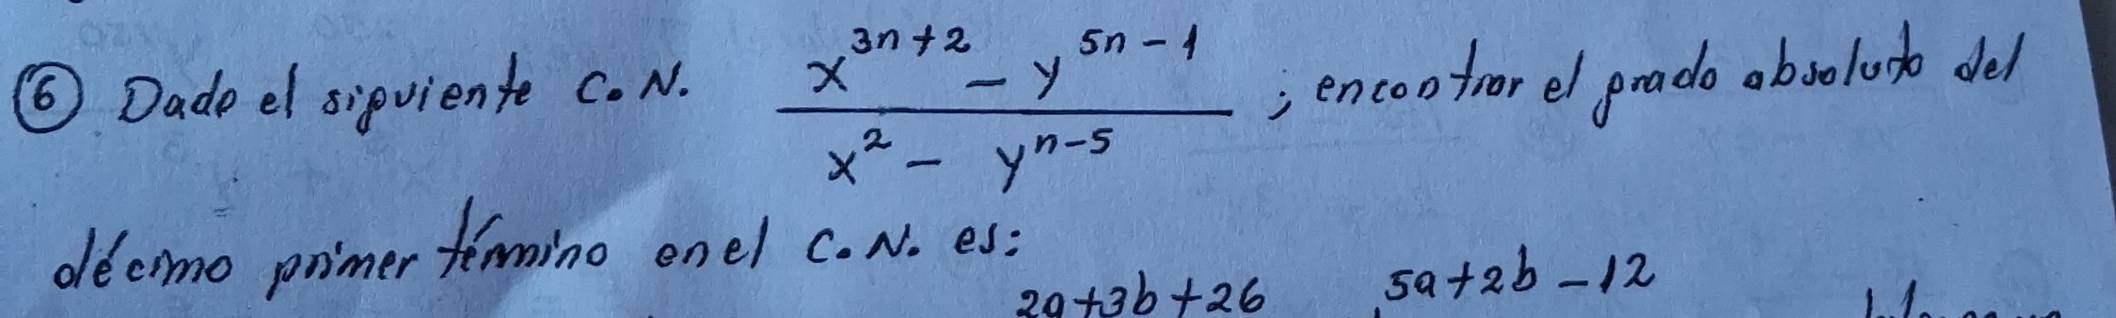 ⑥ Dado el siguiente C.N. (x^(3n+2) - y^(5n-1)) / (x^2 - y^(n-5)) ; encontrar el grado absoluto del
décimo primer término en el C.N. es:
2a+3b+26 5a+2b-12